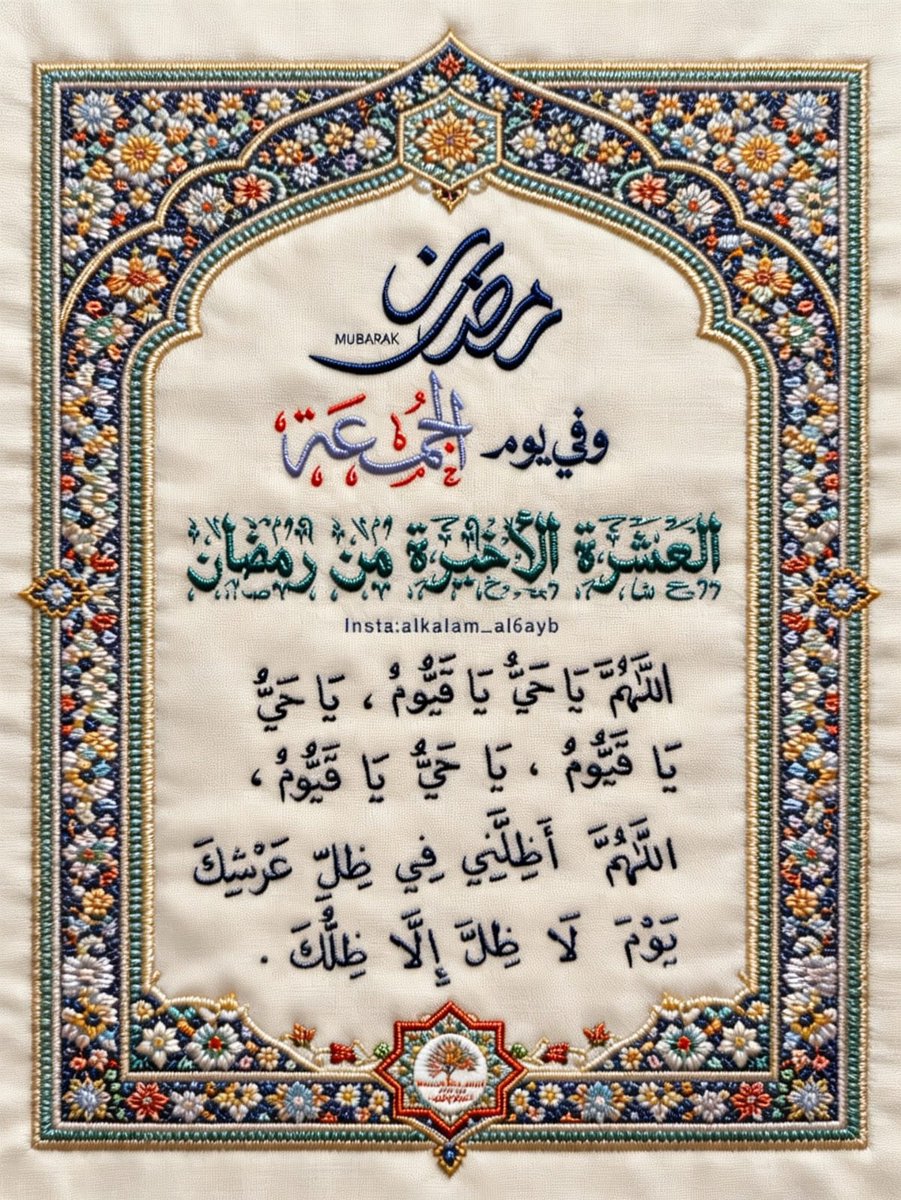 رمضان
MUBARAK
وفي يوم الجُمُعَة
العَشَرَة الأخيرة مِن رمضان
Insta:alkalam_al6ayb
اللَّهُمَّ يَا حَيُّ يَا قَيُّومُ ، يَا حَيُّ
يَا قَيُّومُ ، يَا حَيُّ يَا قَيُّومُ ،
اللَّهُمَّ أَظِلَّنِي فِي ظِلِّ عَرْشِكَ
يَوْمَ لَا ظِلَّ إِلَّا ظِلُّكَ .